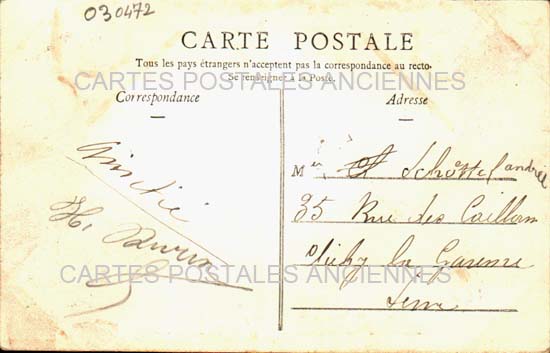 030472
CARTE POSTALE
Tous les pays étrangers n'acceptent pas la correspondance au recto.
Se renseigner à la Poste.
CARTES POSTALES ANCIENNES
Correspondance
Adresse
Amitié
H.
Mlle Schottel andrée
35 Rue des Cailloux
Clichy la Garenne
Seine
CARTES POSTALES ANCIENNES